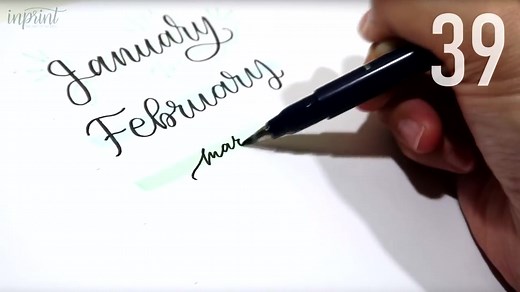 inprint
39
January
February
mar